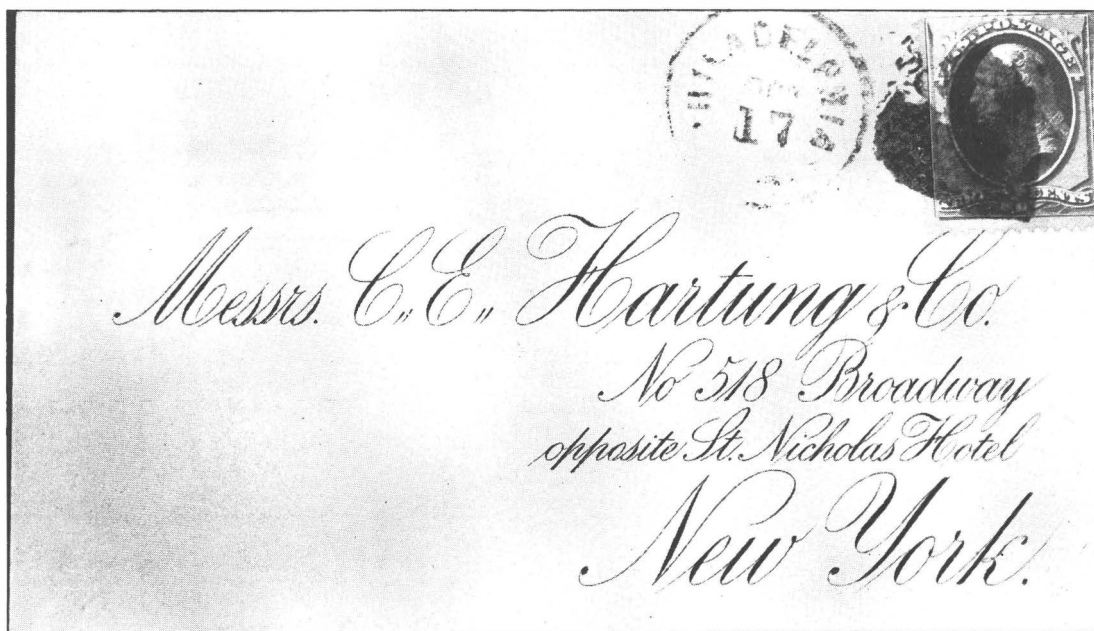 PHILADELPHIA
17
U.S. POSTAGE
CENTS
Messrs. C,, E,, Hartung & Co.
No 518 Broadway
opposite St. Nicholas Hotel
New York.